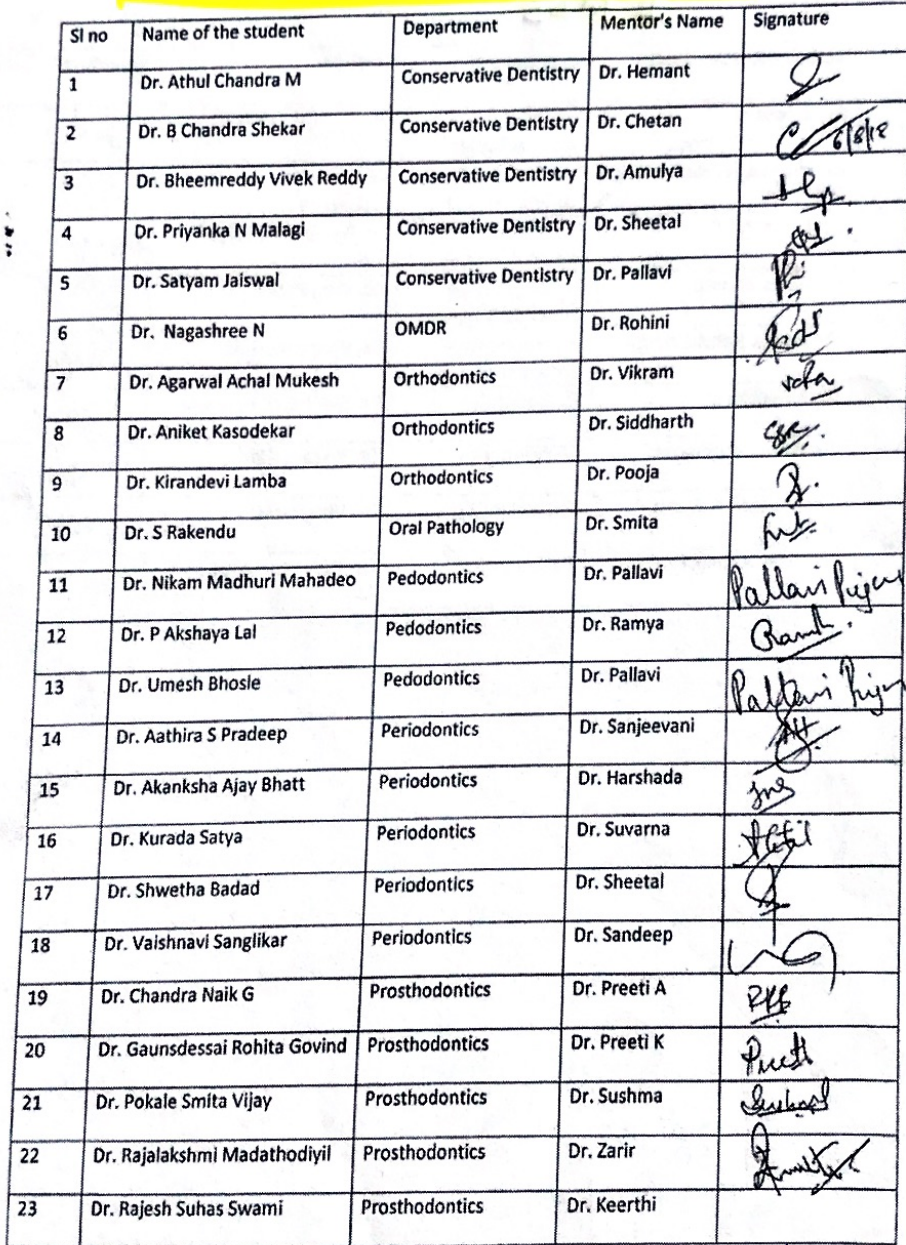 Sl no Name of the student Department Mentor's Name Signature
1 Dr. Athul Chandra M Conservative Dentistry Dr. Hemant
2 Dr. B Chandra Shekar Conservative Dentistry Dr. Chetan 6/8/18
3 Dr. Bheemreddy Vivek Reddy Conservative Dentistry Dr. Amulya
4 Dr. Priyanka N Malagi Conservative Dentistry Dr. Sheetal
5 Dr. Satyam Jaiswal Conservative Dentistry Dr. Pallavi
6 Dr. Nagashree N OMDR Dr. Rohini
7 Dr. Agarwal Achal Mukesh Orthodontics Dr. Vikram
8 Dr. Aniket Kasodekar Orthodontics Dr. Siddharth
9 Dr. Kirandevi Lamba Orthodontics Dr. Pooja
10 Dr. S Rakendu Oral Pathology Dr. Smita
11 Dr. Nikam Madhuri Mahadeo Pedodontics Dr. Pallavi Pallavi
12 Dr. P Akshaya Lal Pedodontics Dr. Ramya
13 Dr. Umesh Bhosle Pedodontics Dr. Pallavi Pallavi
14 Dr. Aathira S Pradeep Periodontics Dr. Sanjeevani
15 Dr. Akanksha Ajay Bhatt Periodontics Dr. Harshada
16 Dr. Kurada Satya Periodontics Dr. Suvarna
17 Dr. Shwetha Badad Periodontics Dr. Sheetal
18 Dr. Vaishnavi Sanglikar Periodontics Dr. Sandeep
19 Dr. Chandra Naik G Prosthodontics Dr. Preeti A
20 Dr. Gaunsdessai Rohita Govind Prosthodontics Dr. Preeti K
21 Dr. Pokale Smita Vijay Prosthodontics Dr. Sushma
22 Dr. Rajalakshmi Madathodiyil Prosthodontics Dr. Zarir
23 Dr. Rajesh Suhas Swami Prosthodontics Dr. Keerthi